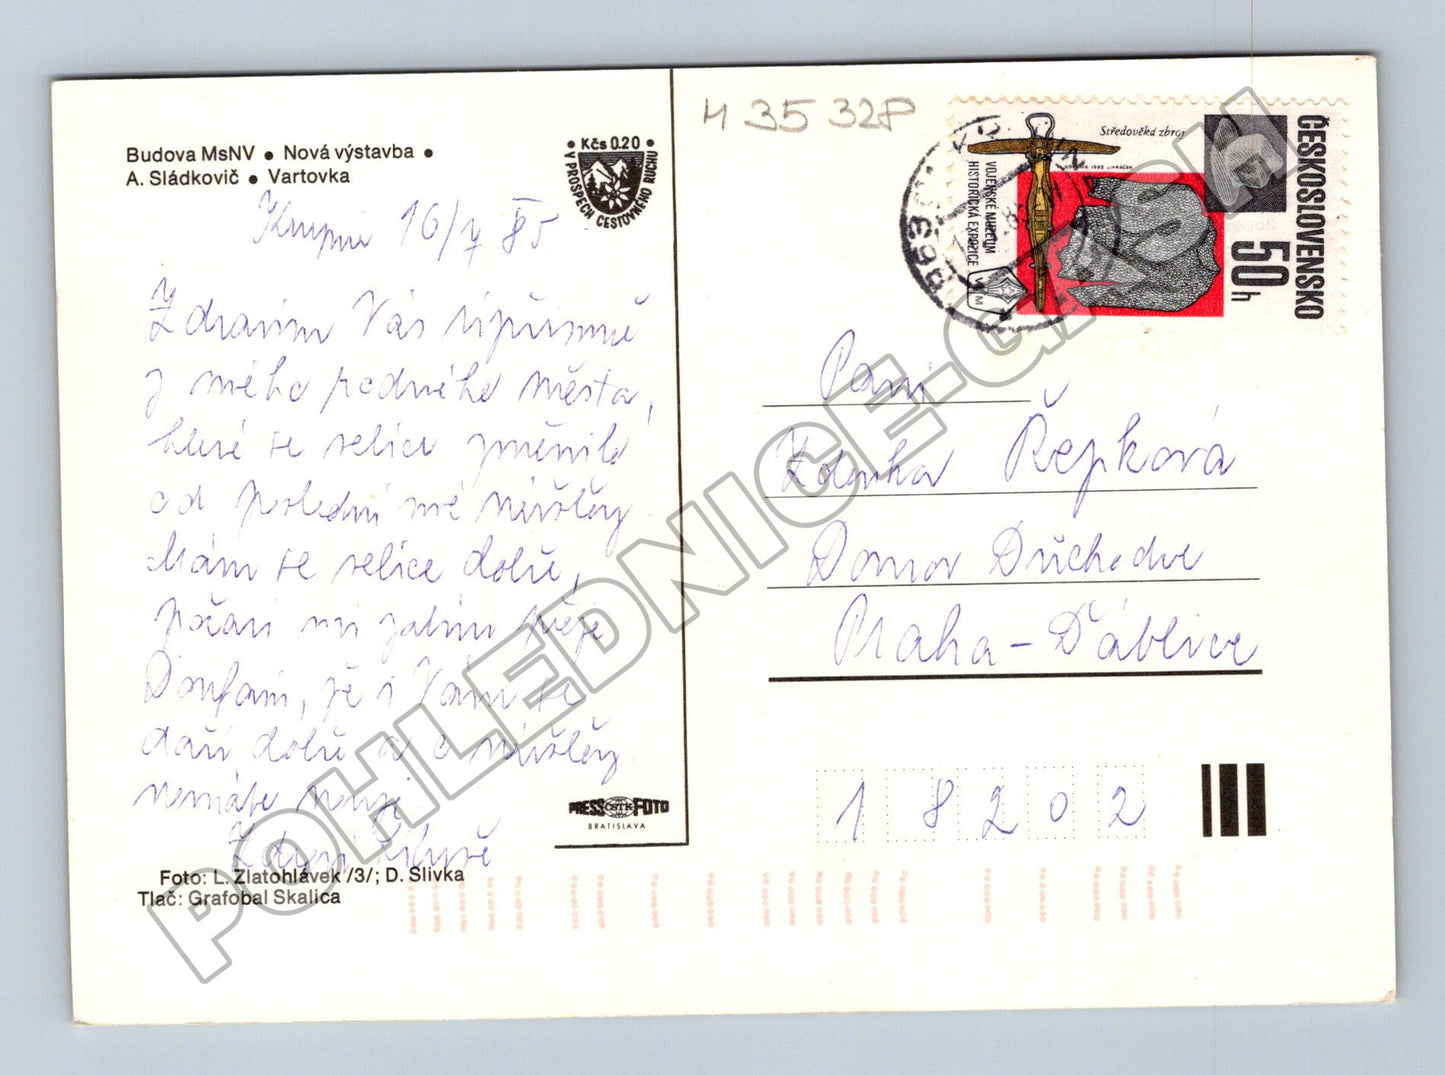 Budova MsNV • Nová výstavba •
A. Sládkovič • Vartovka
• Kčs 0.20 •
V PROSPECH CESTOVNÉHO RUCHU
Krupina 16/7 85
Zdravím Vás upřímně
z mého rodného města,
které se velice změnilo
od poslední mé návštěvy.
Mám se velice dobře,
počasí mi zatím přeje
Doufám, že i Vám se
daří dobře a o návštěvy
nemáte nouzi
Zdena
Foto: L. Zlatohlávek /3/; D. Slivka
Tlač: Grafobal Skalica
PRESS ČSTK FOTO
BRATISLAVA
H 35 328
963
Středověká zbroj
VOJENSKÉ MUZEUM
HISTORICKÁ EXPOZICE
ČESKOSLOVENSKO
50h
Paní
Zdenka Řepková
Domov Důchodce
Praha - Ďáblice
18202
POHLEDNICE-GALLERY